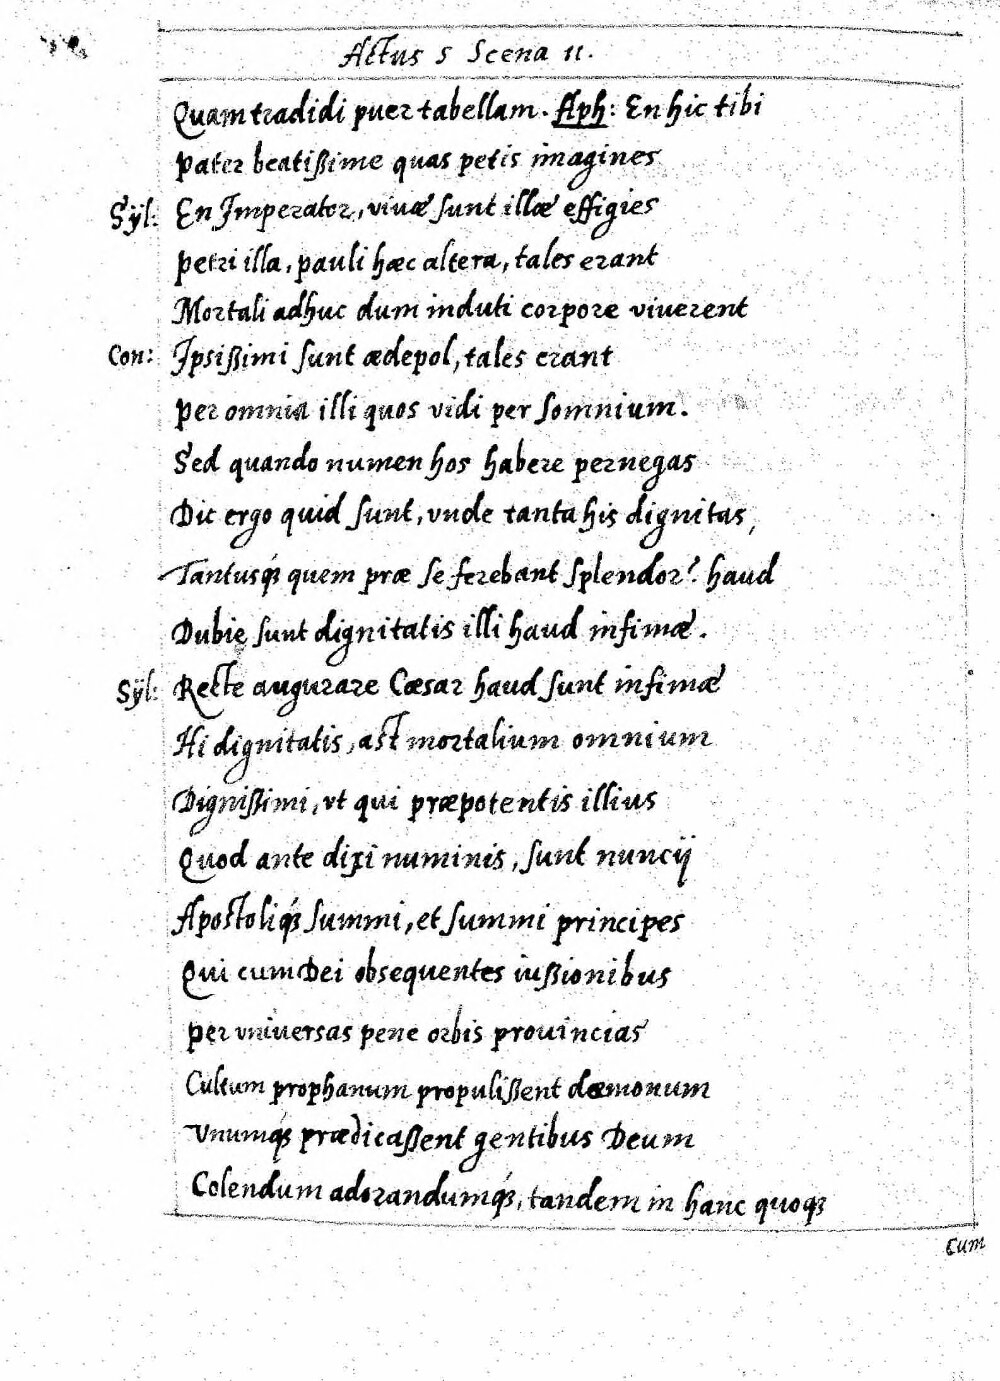 Actus 5 Scena 11.
Quam tradidi puer tabellam. Aph: En hic tibi
Pater beatißime quas petis imagines
Syl: En Imperator, viuæ sunt illæ effigies
Petri illa, pauli hæc altera, tales erant
Mortali adhuc dum induti corpore viuerent
Con: Ipsißimi sunt ædepol, tales erant
Per omnia illi quos vidi per somnium.
Sed quando numen hos habere pernegas
Dic ergo quid sunt, vnde tanta his dignitas,
Tantusq́ꝫ quem præ se ferebant splendor? haud
Dubie sunt dignitatis illi haud infimæ.
Syl: Recte augurare Cæsar haud sunt infimæ
Hi dignitatis, ast mortalium omnium
Dignißimi, vt qui præpotentis illius
Quod ante dixi numinis, sunt nuncij
Apostoliq́ꝫ summi, et summi principes
Qui cum Dei obsequentes iußionibus
Per vniuersas pene orbis prouincias
Cultum prophanum propulißent dæmonum
Vnumq́ꝫ prædicaßent gentibus Deum
Colendum adorandumq́ꝫ, tandem in hanc quoqꝫ
Cum